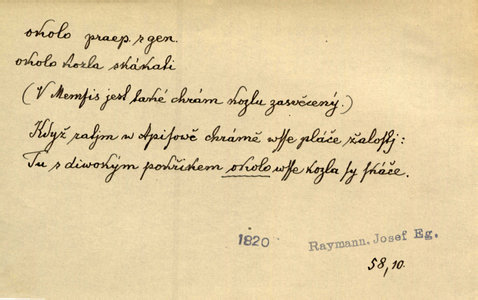 okolo praep. z gen.
okolo kozla skákati
(V Memfis jest také chrám kozlu zasvěcený.)
Když w Apisowě chrámě wsse pláče žalostj:
Tu s diwokým pokřikem okolo wsse kozla sy skáče.
1820 Raymann, Josef Eg.
58, 10.